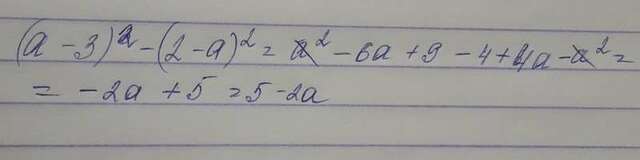 (a - 3)² - (2 - a)² = a² - 6a + 9 - 4 + 4a - a² =
= -2a + 5 = 5 - 2a